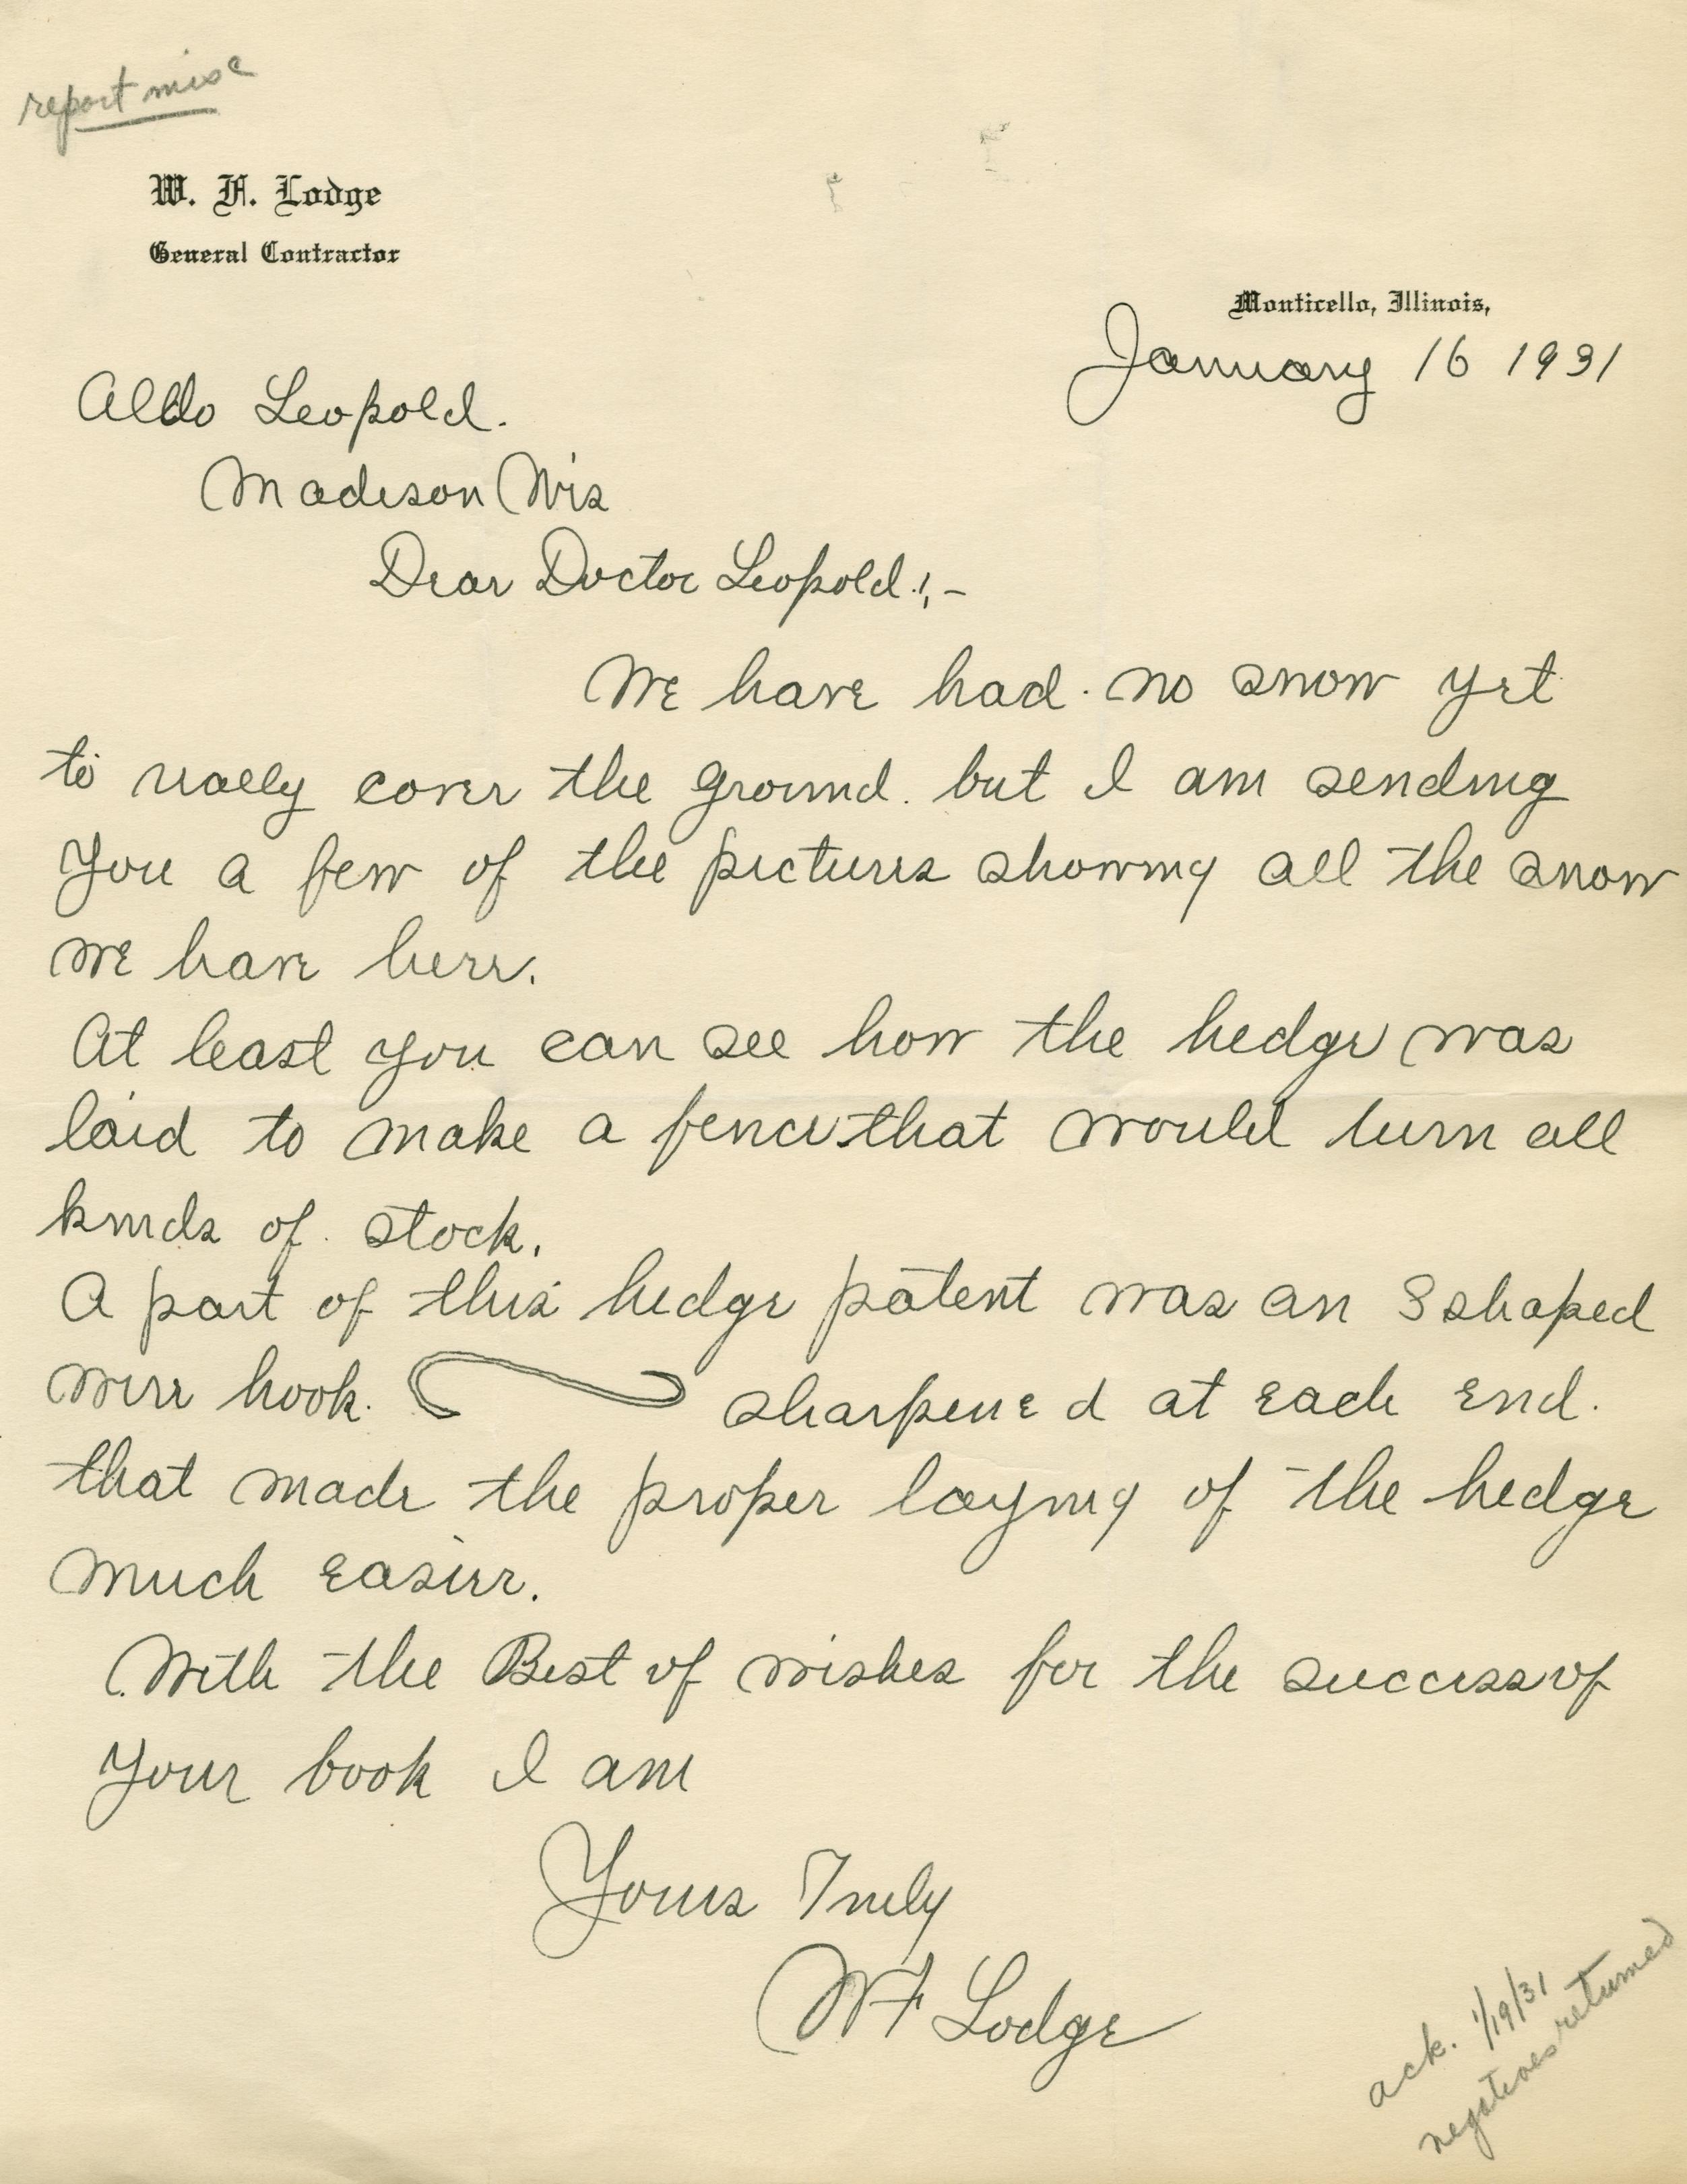 report misc
W. F. Lodge
General Contractor
Monticello, Illinois,
January 16 1931
Aldo Leopold.
Madison Wis
Dear Doctor Leopold:,-
We have had no snow yet
to really cover the ground. but I am sending
you a few of the pictures showing all the snow
we have here.
At least you can see how the hedge was
laid to make a fence that would turn all
kinds of stock.
A part of this hedge patent was an S shaped
wire hook. sharpened at each end.
that made the proper laying of the hedge
much easier.
With the Best of wishes for the success of
your book I am
Yours Truly
WF Lodge
ack. 1/19/31
negatives returned